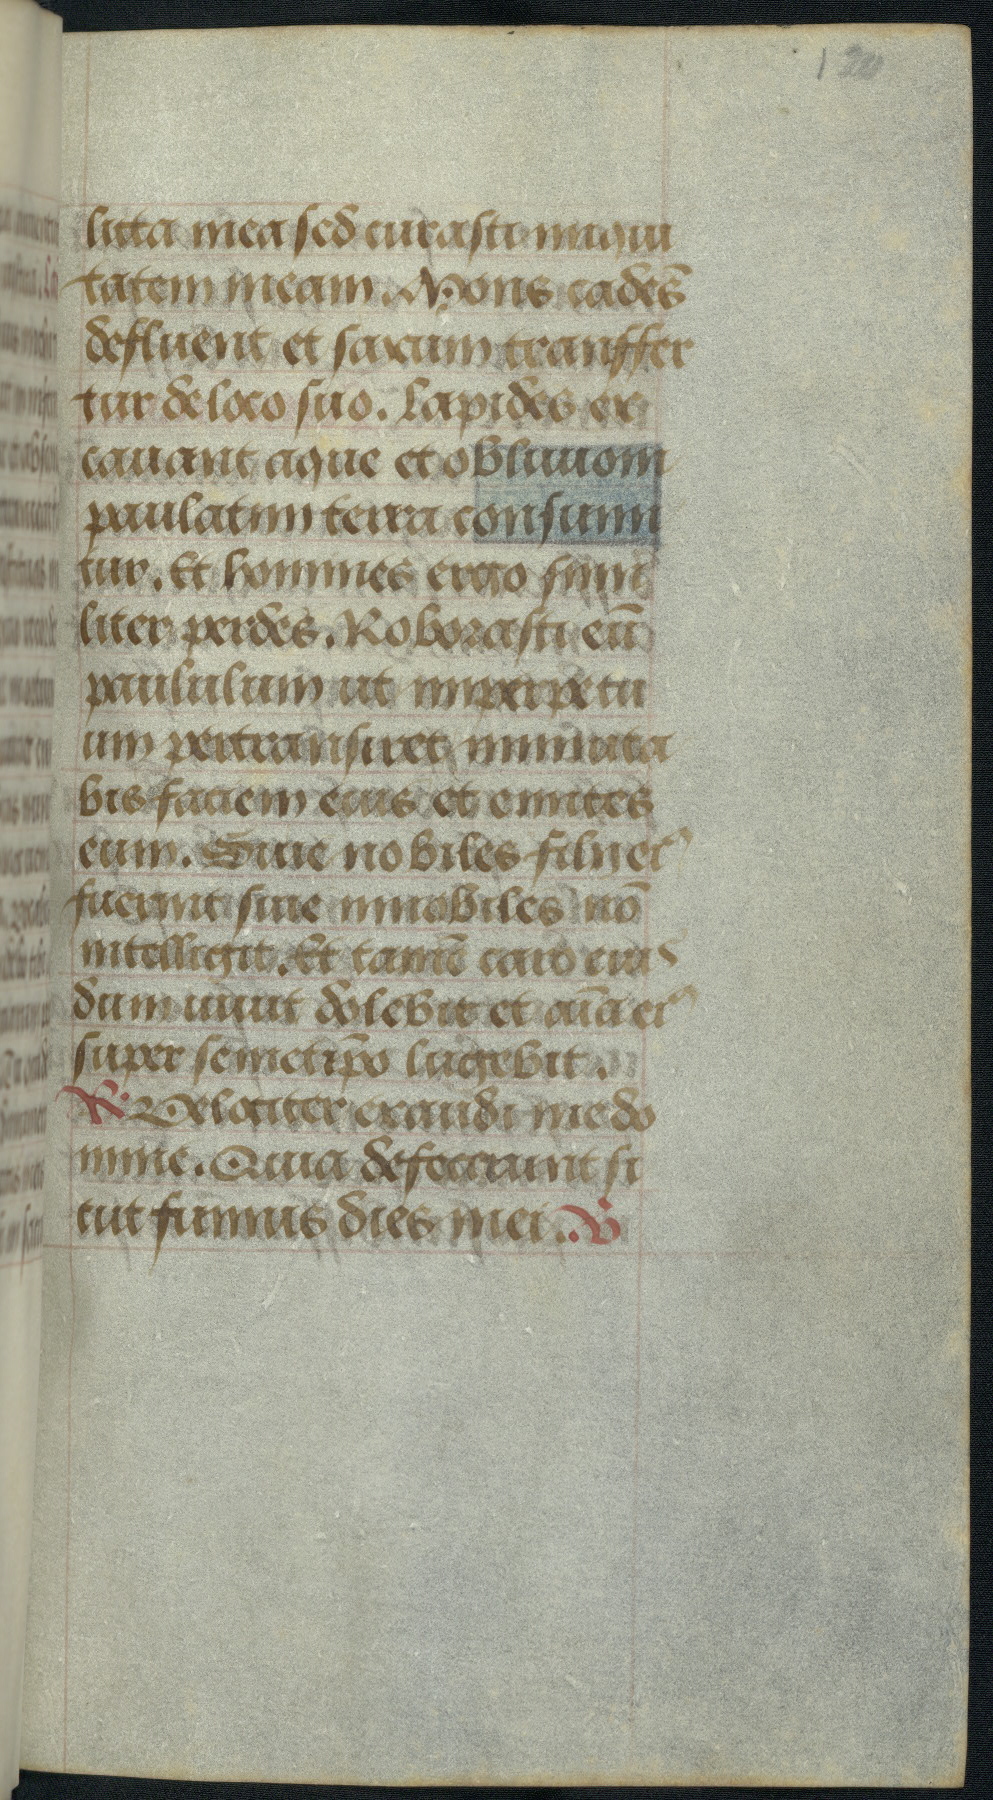 120
licta mea sed curasti iniqui
tatem meam. Mons cadēs
defluent et saxum transffer
tur de loco suo. Lapides ex
cauant aque et obluuiom
paulatim terra consumi
tur. Et homines ergo simi
liter perdes. Roborasti eū
paululum ut imperpetu
um pertransiret immuta
bis faciem eius et emites
eum. Siue nobiles filii eiꝰ
fuerint siue innobiles nō
intelligit. Et tamē caro eiꝰ
dum uiuit dolebit et aīa eiꝰ
super semetip̄o lugebit.
R. Velociter exaudi me do
mine. Quia defecerunt si
cut fumus dies mei. V